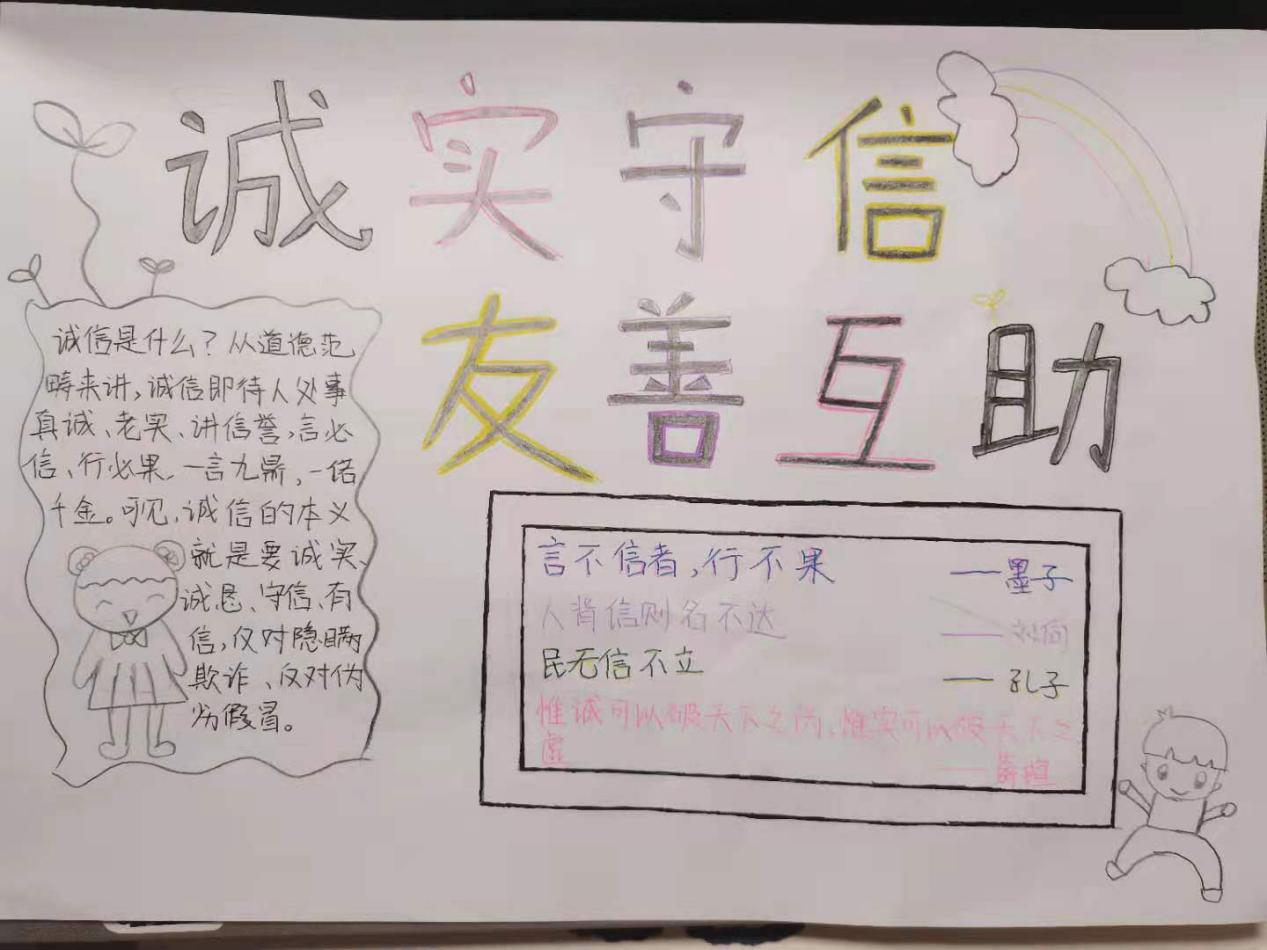 诚实守信
友善互助
诚信是什么？从道德范
畴来讲，诚信即待人处事
真诚、老实、讲信誉，言必
信、行必果，一言九鼎，一诺
千金。可见，诚信的本义
就是要诚实、
诚恳、守信、有
信，反对隐瞒
欺诈、反对伪
劣假冒。
言不信者，行不果 ——墨子
人背信则名不达 ——刘向
民无信不立 ——孔子
惟诚可以破天下之伪，惟实可以破天下之
虚 ——薛瑄